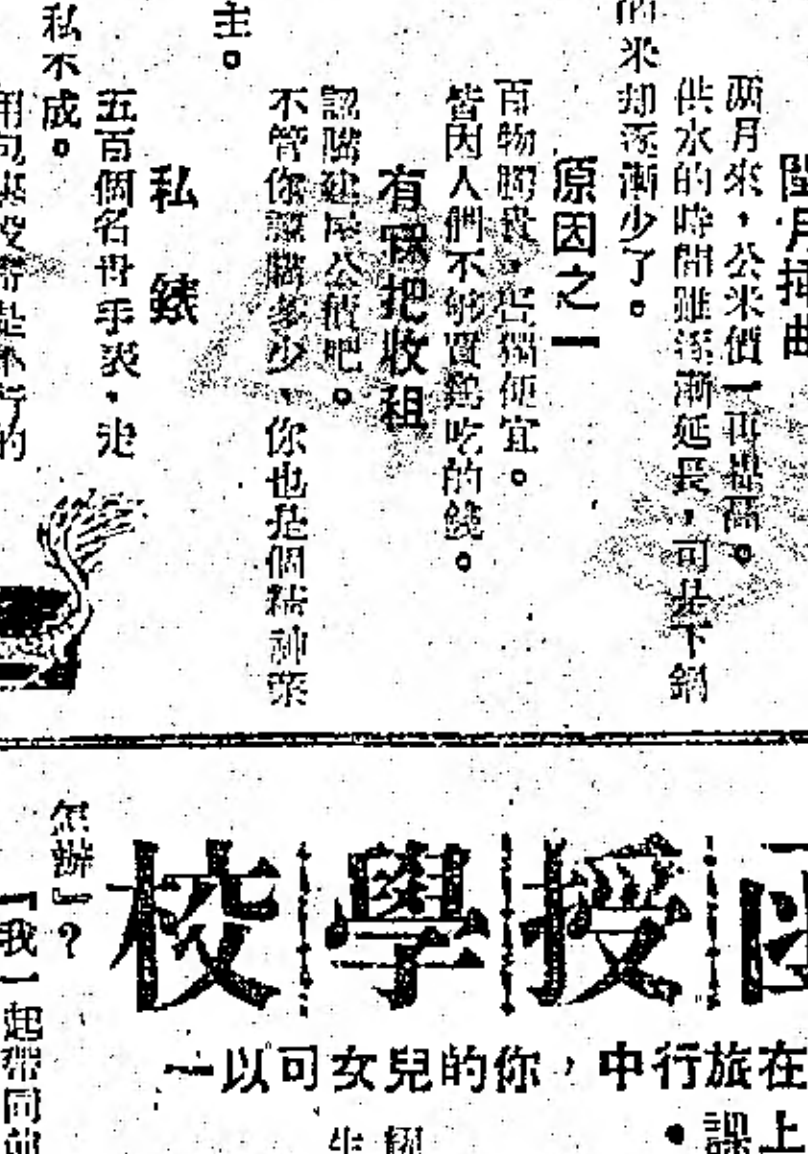 閏月插曲
两月來，公米價一再提高。
供水的時間雖逐漸延長，可是下鍋
的米却逐漸少了。
原因之一
百物騰貴，豈獨便宜。
皆因人們不够買鷄吃的錢。
有得把收租
認購建屋公債吧。
不管你認購多少、你也是個精神業
主。
私錶
五百個名貴手表，走
私不成。
函授學校
在旅行中，你的兒女可以一
上課
怎辦』？
「我一起帶同